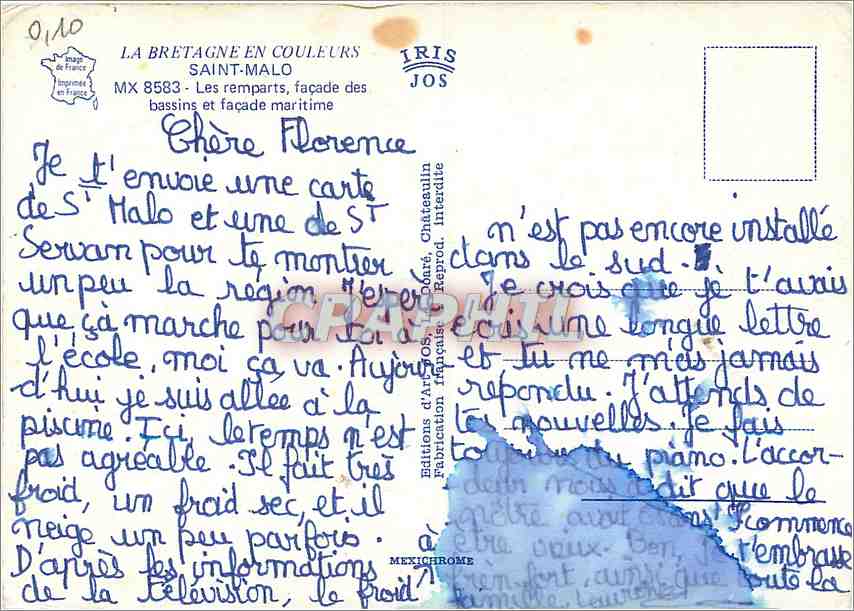 0,10
Image
de France
Imprimée
en France
LA BRETAGNE EN COULEURS
SAINT-MALO
MX 8583 - Les remparts, façade des
bassins et façade maritime
IRIS
JOS
Chère Florence
Je t'envoie une carte
de St Malo et une de St
Servan pour te montrer
un peu la région J'espère
que çà marche pour toi à
l'école, moi ça va. Aujour-
d'hui je suis allée à la
piscine. Ici, le temps n'est
pas agréable. Il fait très
froid, un froid sec, et il
neige un peu parfois.
D'après les informations à
de la télévision, le froid
n'est pas encore installé
dans le sud.
Je crois que je t'avais
ecris une longue lettre
et tu ne m'as jamais
repondu. J'attends de
tes nouvelles. Je fais
toujours du piano. L'accor-
deur nous a dit que le
nôtre avait ans Il commence
être vieux. Ben, je t'embrasse
très fort, ainsi que toute la
famille.
Editions d'Art JOS, Doaré, Châteaulin
Fabrication française Reprod. interdite
MEXICHROME
CPAPHIL